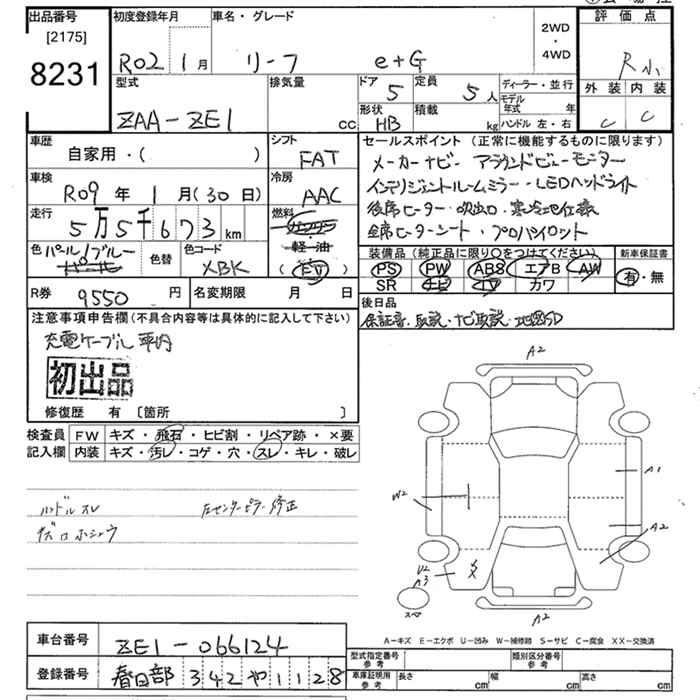 出品番号 初度登録年月 車名・グレード 評価点
[2175] 2WD
8231 R02 1月 リーフ e+G 4WD R小
型式 排気量 ドア 定員 ディーラー・並行 外装 内装
5 5人 モデル年式 年 C C
ZAA-ZE1 cc 形状 積載 kg ハンドル 左・右
HB
車歴 シフト セールスポイント(正常に機能するものに限ります)
自家用・( ) FAT メーカーナビー アラウンドビューモニター
車検 冷房 インテリジェントルームミラー・LEDヘッドライト
R09年 1月(30日) AAC 後席ヒーター・吹出口・寒冷地仕様
走行 燃料 全席ヒーターシート・プロパイロット
5万5千673km ガソリン
色 パール/ブルー 色替 色コード 軽・油 装備品(純正品に限り○をつけてください) 新車保証書
パール XBK (EV) PS PW ABS エアB AW 有・無
R券 9550円 名変期限 月 日 SR ナビ TV カワ
注意事項申告欄(不具合内容等は具体的に記入して下さい) 後日品
充電ケーブル 車内 保証書・取説・ナビ取説・地図SD
初出品
修復歴 有 〔箇所 〕
検査員 FW キズ・飛石・ヒビ割・リペア跡・×要
記入欄 内装 キズ・汚レ・コゲ・穴・スレ・キレ・破レ
ハンドルスレ 左センターピラー修正
A2
A1
W2
A2
U2
A3
スペア
A2
A-キズ E-エクボ U-凹み W-補修跡 S-サビ C-腐食 XX-交換済
車台番号 ZE1-066124 型式指定番号 参考 類別区分番号 参考
登録番号 春日部 342 や 1128 車庫証明用 参考 長さ cm 幅 cm 高さ cm